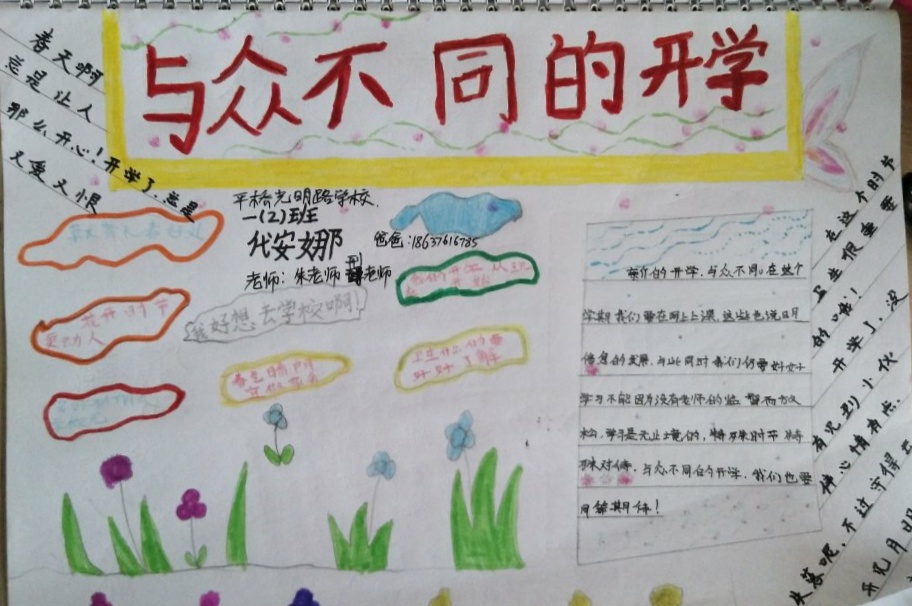 与众不同的开学
春天啊
总是让人
那么开心！开学了，总是
又爱又恨
平桥光明路学校
一(2)班
代安娜
爸爸:18637616785
老师：朱老师 邢老师
花开的时节
更动人
我好想去学校啊!
卫生也要
好好了解
我们的开学，与众不同。在这个
学期我们要在网上上课，这些也说明
信息的发展，与此同时我们仍要好好
学习不能因为没有老师的监督而放
松，学习是无止境的，特殊时节特
殊对待，与众不同的开学，我们也要
同样期待！
在这个时节
卫生很重要
的哦！
开学了，没
有见到小伙
伴心情有点，
失落呢，不过守得云
开见月明